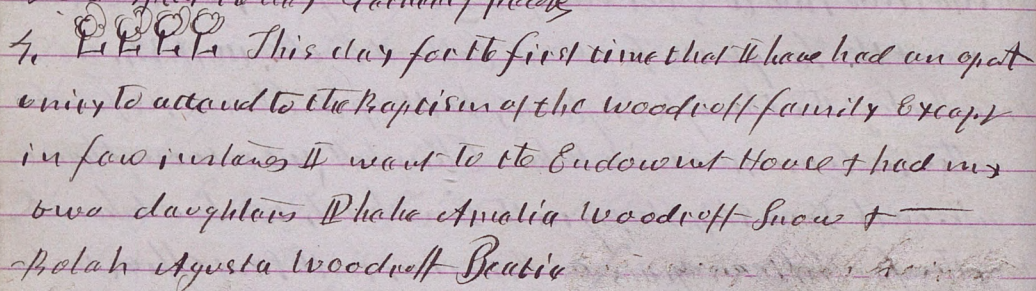 4. This day for the first time that I have had an oport
unity to attend to the Baptism of the Woodroff family Except
in few instances I went to the Endowmet House & had my
two daughters Phebe Amelia Woodroff Snow &
Bulah Agusta Woodroff Beatie